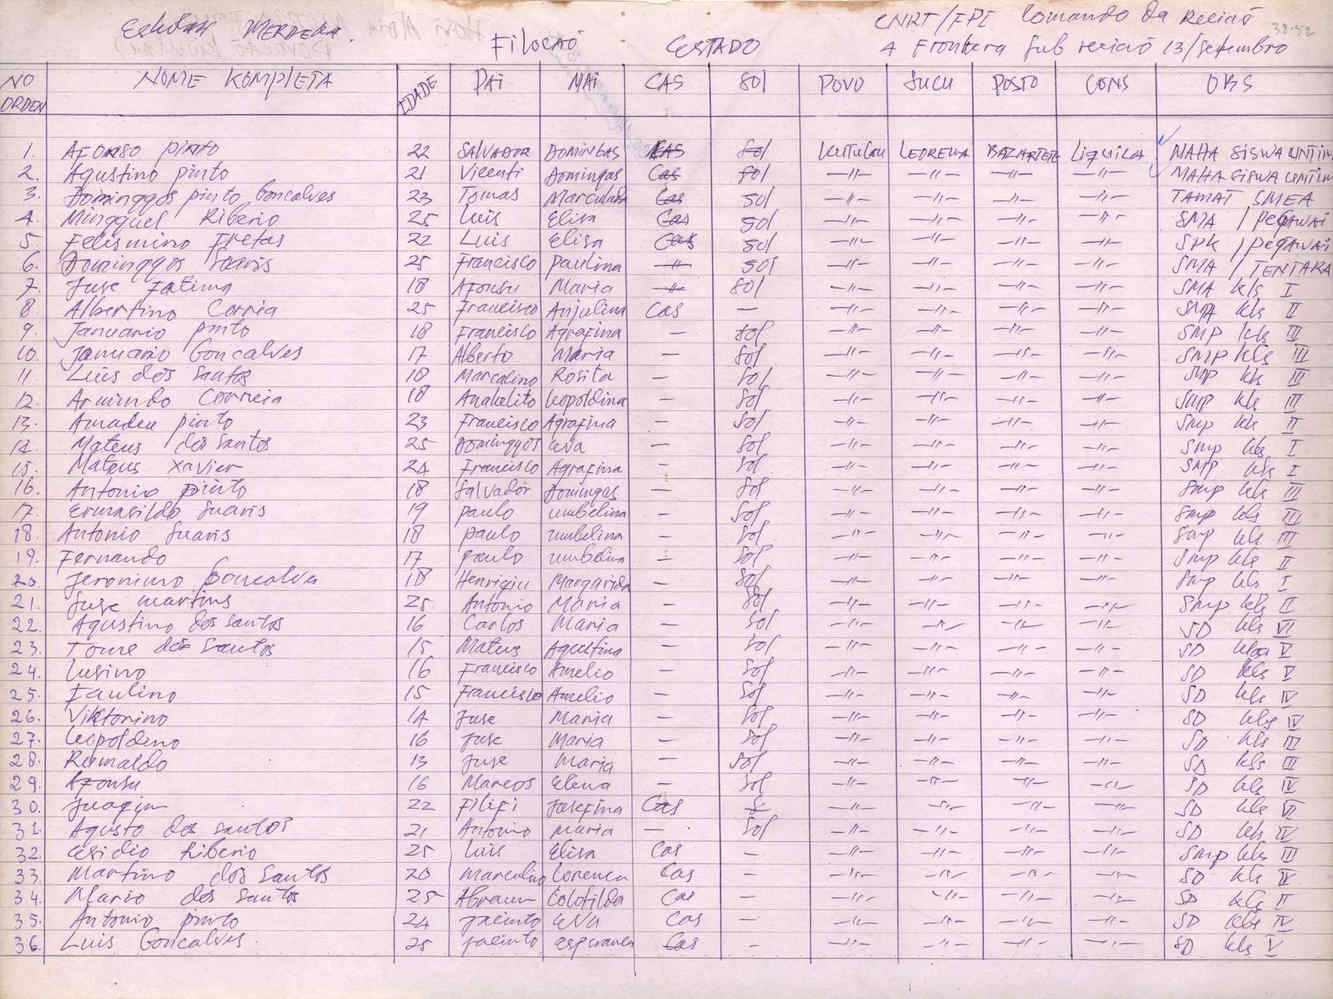 MERDEKA. CNRT/FPI Comando Da Reciaõ
Filocaõ ESTADO A Frontera Sub reciaõ 13/Setembro
NO ORDEN NOME KOMPLETA IDADE PAI MAI CAS SOL POVO SUCU POSTO CONS OBS
1. Afonso pinto 22 SALVADOR DOMINGAS CAS Sol LEOREMA BAZARTETE Liquica MAHASISWA UNTIM
2. Agustino pinto 21 Vicenti Domingas Cas Sol -"- -"- -"- -"- MAHASISWA UNTIM
3. Dominggos pinto Goncalves 23 Tomas Cas Sol -"- -"- -"- -"- TAMAT SMEA
4. Minggues Riberio 25 Luis Elisa Cas Sol -"- -"- -"- -"- SMA / PEGAWAI
5. Felismino Fretas 22 Luis Elisa Cas Sol -"- -"- -"- -"- SPK / PEGAWAI
6. Dominggos Soaris 25 Francisco Paulina -"- Sol -"- -"- -"- -"- SMA / TENTARA
7. Juse Fatima 18 Afonsu Maria -"- Sol -"- -"- -"- -"- SMA kls I
8. Albertino Correia 25 Francisco Anjulina Cas — -"- -"- -"- -"- SMA kls II
9. Januario pinto 18 Francisco Agrafina — Sol -"- -"- -"- -"- SMP kls III
10. Januario Goncalves 17 Alberto Maria — Sol -"- -"- -"- -"- SMP kls III
11. Luis dos Santos 18 Marcalino Rosita — Sol -"- -"- -"- -"- SMP kls III
12. Armindo Correia 18 Anakelito Leopoldina — Sol -"- -"- -"- -"- SMP kls III
13. Amadeu pinto 23 Francisco Agrafina — Sol -"- -"- -"- -"- Smp kls II
14. Mateus dos Santos 25 Dominggos Eva — Sol -"- -"- -"- -"- Smp kls I
15. Mateus Xavier 24 Francisco Agrafina — Sol -"- -"- -"- -"- SMP kls I
16. Antonio pinto 18 Salvador Domingas — Sol -"- -"- -"- -"- Smp kls III
17. Ermasildo Suaris 19 paulo umbelina — Sol -"- -"- -"- -"- Smp kls III
18. Antonio Suaris 18 paulo umbelina — Sol -"- -"- -"- -"- Smp kls III
19. Fernando 17 paulo umbelina — Sol -"- -"- -"- -"- Smp kls II
20. Jeronimo Goncalva 18 Henrigiu Margarida — Sol -"- -"- -"- -"- Smp kls I
21. Juse martins 25 Antonio Maria — Sol -"- -"- -"- -"- Smp kls II
22. Agustino dos santos 16 Carlos Maria — Sol -"- -"- -"- -"- SD kls VI
23. Tome dos Santos 15 Mateus Agustina — Sol -"- -"- -"- -"- SD klas V
24. Lusino 16 Francisco Amelio — Sol -"- -"- -"- -"- SD kls V
25. Faulino 15 Francisco Amelio — Sol -"- -"- -"- -"- SD kls IV
26. Viktorino 14 Juse Maria — Sol -"- -"- -"- -"- SD kls IV
27. Leopoldino 16 Juse Maria — Sol -"- -"- -"- -"- SD kls III
28. Romaldo 13 Juse Maria — Sol -"- -"- -"- -"- SD kls III
29. Afonsu 16 Marcos Elena — Sol -"- -"- -"- -"- SD kls IV
30. Juagin 22 Filipi Josefina Cas -"- -"- -"- -"- SD kls VI
31. Agusto dos santos 21 Antonio maria — Sol -"- -"- -"- -"- SD kls IV
32. Riberio 25 Luis Elisa Cas — -"- -"- -"- -"- Smp kls III
33. Martino dos Santos 20 marculino Lorenca Cas — -"- -"- -"- -"- SD kls IV
34. Mario dos Santos 25 Abraun Colotilda Cas — -"- -"- -"- -"- SD kls II
35. Antonio pinto 24 jacinto EVA Cas — -"- -"- -"- -"- SD kls IV
36. Luis Goncalves. 25 jacinto esperanca Cas — -"- -"- -"- -"- SD kls V